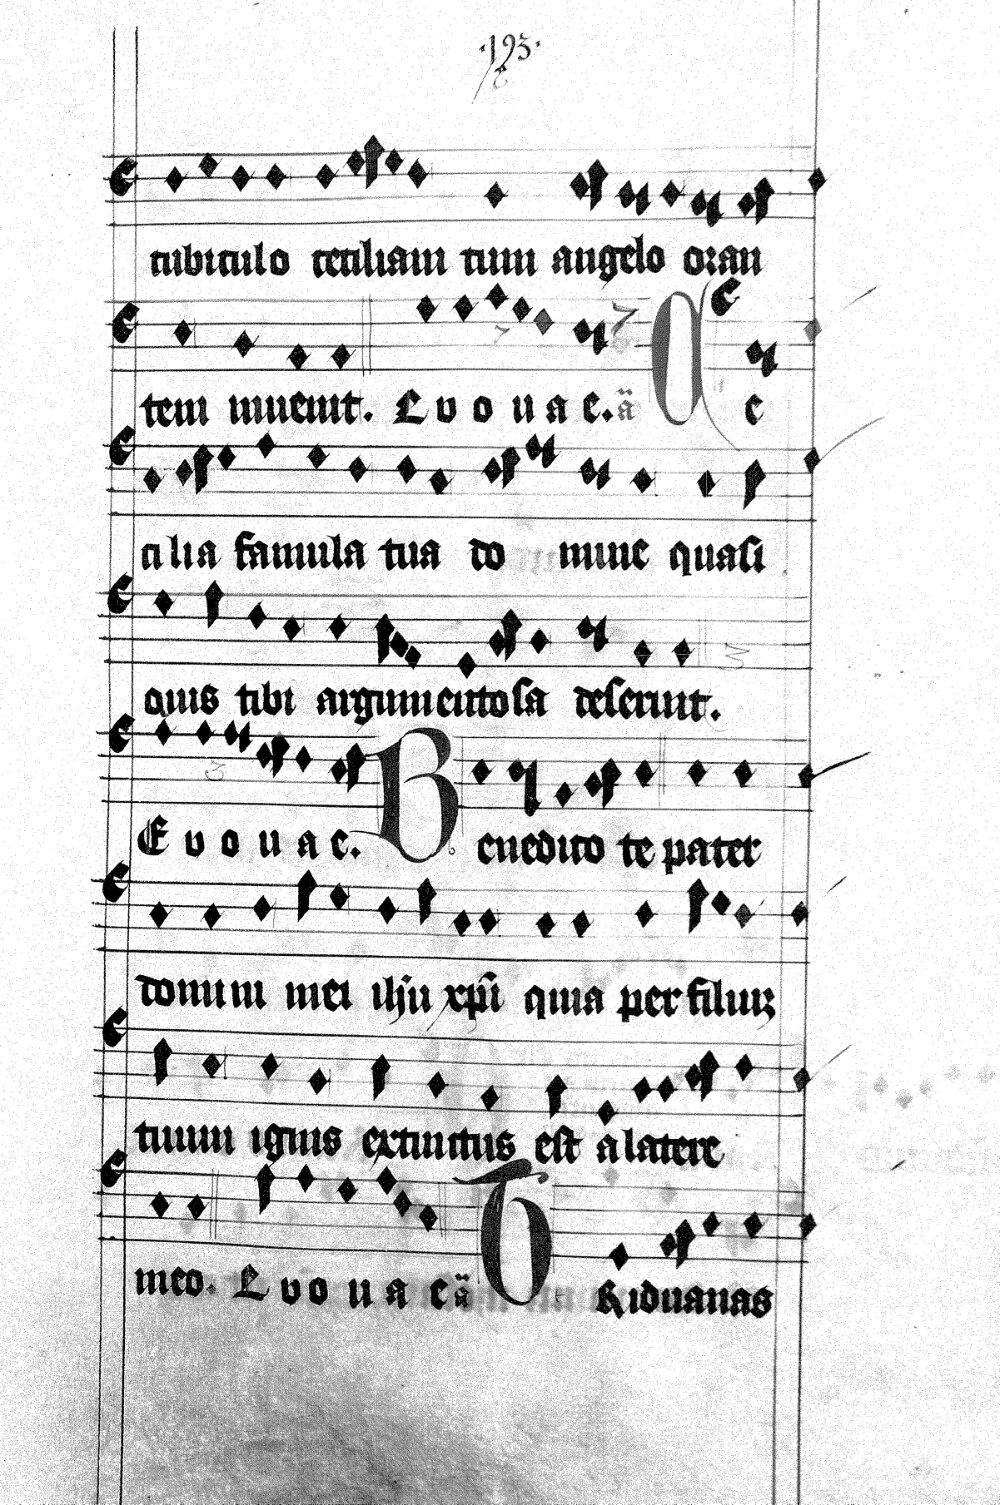 ·193·
cubiculo ceciliam cum angelo oran
tem inuenit. E v o u a e. ä C e
cilia famula tua do mine quasi
quis tibi argumentosa deseruit.
E v o u a e. B enedico te pater
domini mei ihu xpi quia per filiuʒ
tuum ignis extinctus est a latere
meo. E v o u a e ä T Riduanas